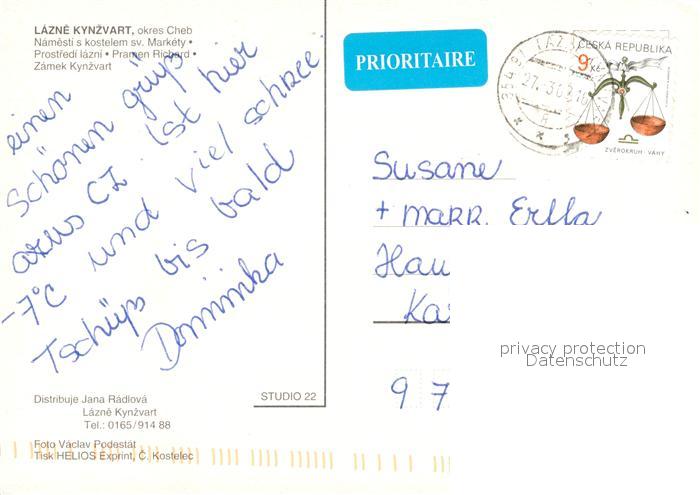 LÁZNĚ KYNŽVART, okres Cheb
Náměstí s kostelem sv. Markéty •
Prostředí lázní • Pramen Richard •
Zámek Kynžvart
einen
Schönen grüß
azus CZ. ist hier
-7°C und viel schnee.
Tschüß bis bald
Dominika
Distribuje Jana Rádlová
Lázně Kynžvart
Tel.: 0165/914 88
Foto Václav Podestát
Tisk HELIOS Exprint, Č. Kostelec
STUDIO 22
PRIORITAIRE
ČESKÁ REPUBLIKA
9 Kč
ZVĚROKRUH - VÁHY
Susane
+ MARR. Ertla
Hau
Ka
9 7
privacy protection
Datenschutz